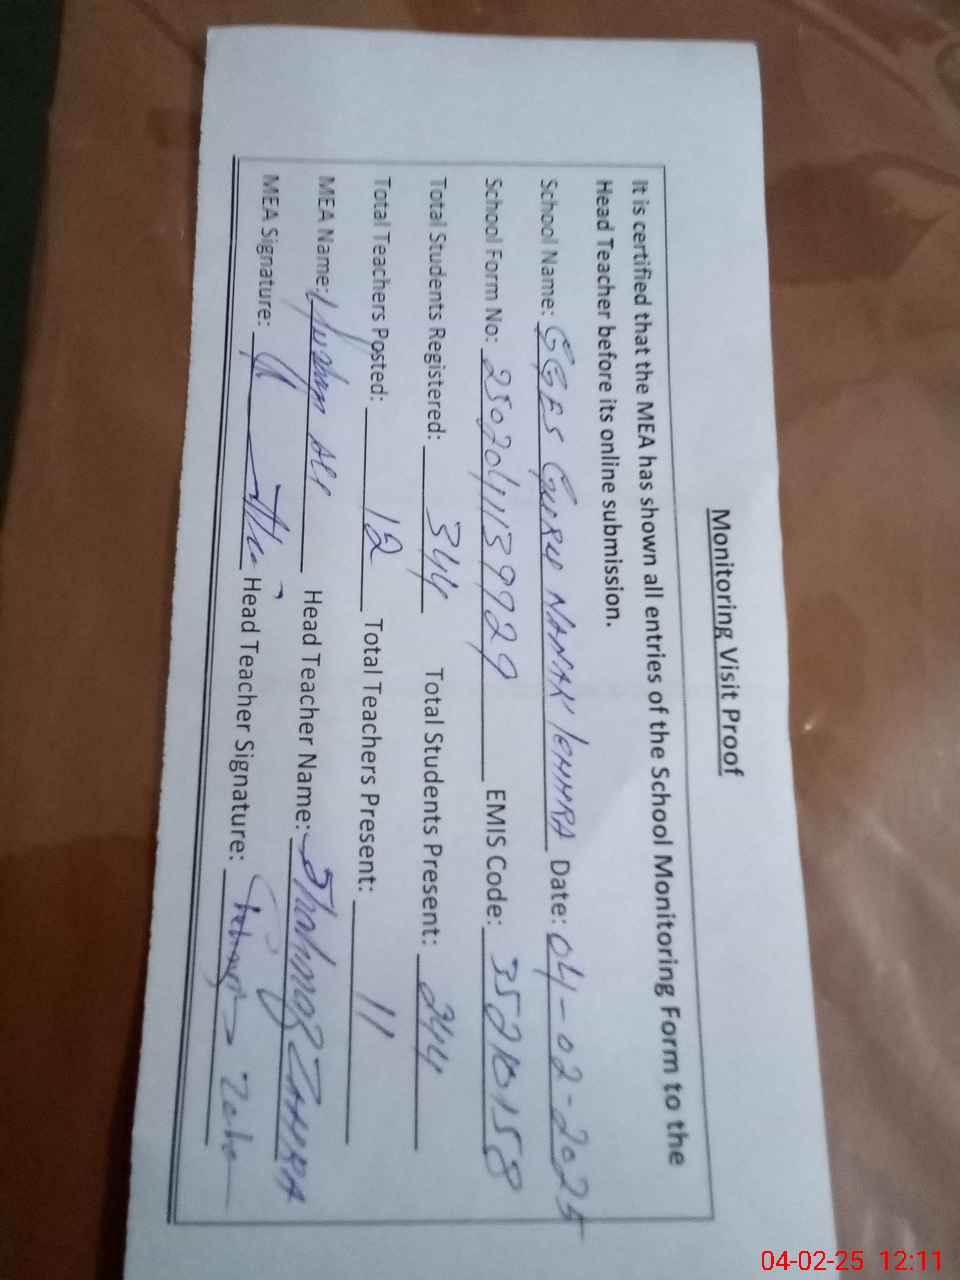 Monitoring Visit Proof
It is certified that the MEA has shown all entries of the School Monitoring Form to the
Head Teacher before its online submission.
School Name: GGES GURU NANAK Date: 04-02-2025
School Form No: 2502041139929 EMIS Code: 35210158
Total Students Registered: 344 Total Students Present: 244
Total Teachers Posted: 12 Total Teachers Present: 11
MEA Name: Ali Head Teacher Name: ZAHRA
MEA Signature: Head Teacher Signature:
04-02-25 12:11